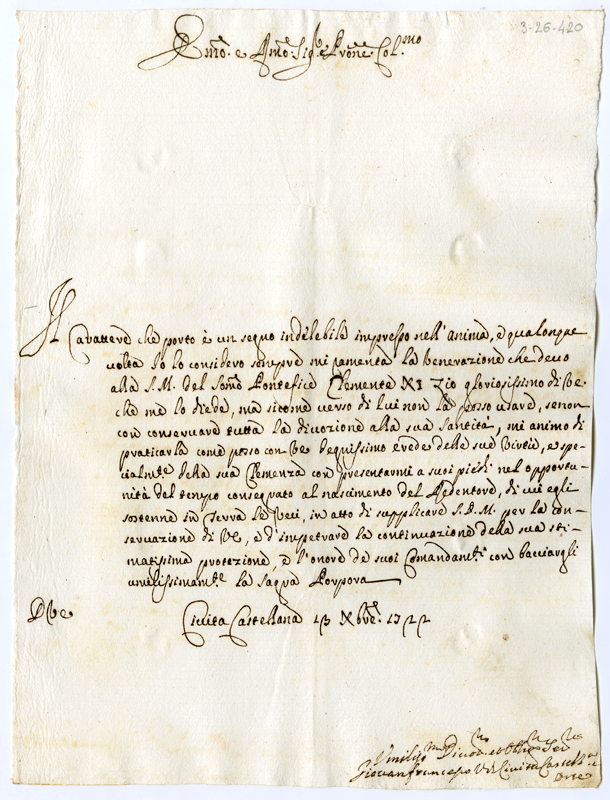 3-26-420
Emo. e Rmo. Sigr. e Prone. Colmo
Il Carattere che porto è un segno indelebile impresso nell'anima, e qualonque
volta Io lo considero sempre mi ramenta la Venerazione che devo
alla S.M. del Somo Pontefice Clemente XI Zio gloriosissimo di Ve
che me lo diede, ma sicome verso di lui non la posso usare, se non
con conservare tutta la divozione alla sua Santità, mi animo di
praticarla come posso con Ve degnissimo erede delle sue Virtù, e spe-
cialmte. della sua Clemenza con presentarmi a suoi piedi nel opportu-
nità del tempo consegrato al nascimento del Redentore, di cui egli
sostenne in terra le Veci, in atto di supplicare S.D.M. per la con-
servazione di Ve, e d'impetrare la continuazione della sua sti-
matissima protezione, e l'onore de suoi Comandamti. con bacciargli
umilissimamte. la Sagra Porpora
D Ve Civita Castellana 13 Xbre. 1722
Umilismo Divotmo et Obbmo Serre
Giovanfrancesco V. di Civita Castellna
Orte